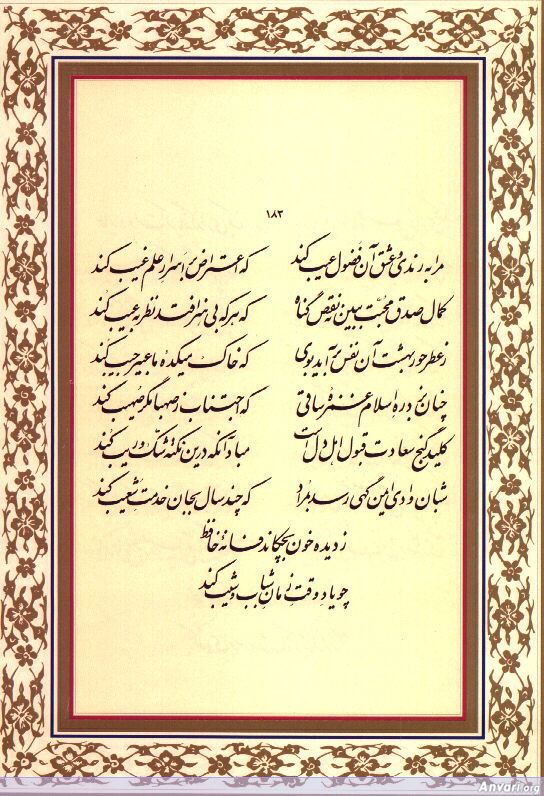 ۱۸۳
مرا به رندی و عشق آن فضول عیب کند که اعتراض بر اسرار علم غیب کند
کمال صدق محبت ببین نه نقص گناه که هر که بی هنر افتد نظر به عیب کند
ز عطر حور بهشت آن نفس برآید بوی که خاک میکده ما عبیر جیب کند
چنان بزد ره اسلام غمزه ساقی که اجتناب ز صهبا مگر صهیب کند
کلید گنج سعادت قبول اهل دل است مباد آنکه درین نکته شک و ریب کند
شبان وادی ایمن گهی رسد بمراد که چند سال بجان خدمت شعیب کند
ز دیده خون بچکاند فسانه حافظ
چو یاد وقت زمان شباب و شیب کند
Anvari.org